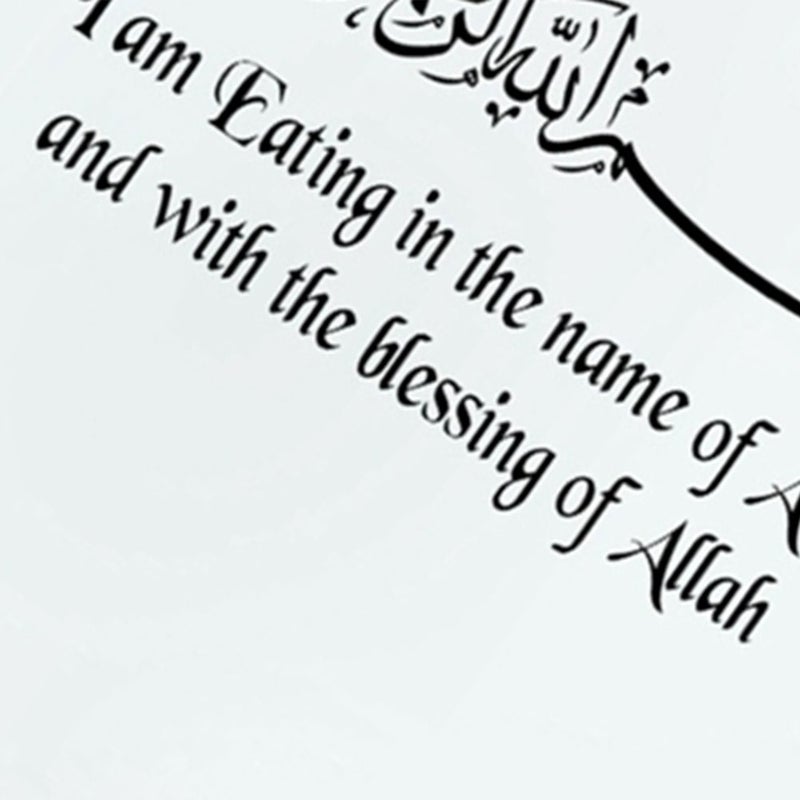 الله
I am Eating in the name of
and with the blessing of Allah